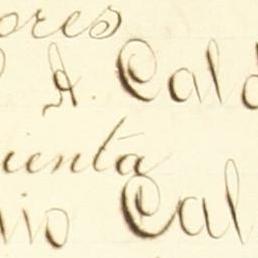 ores
A. Cald
uenta
nio Cal